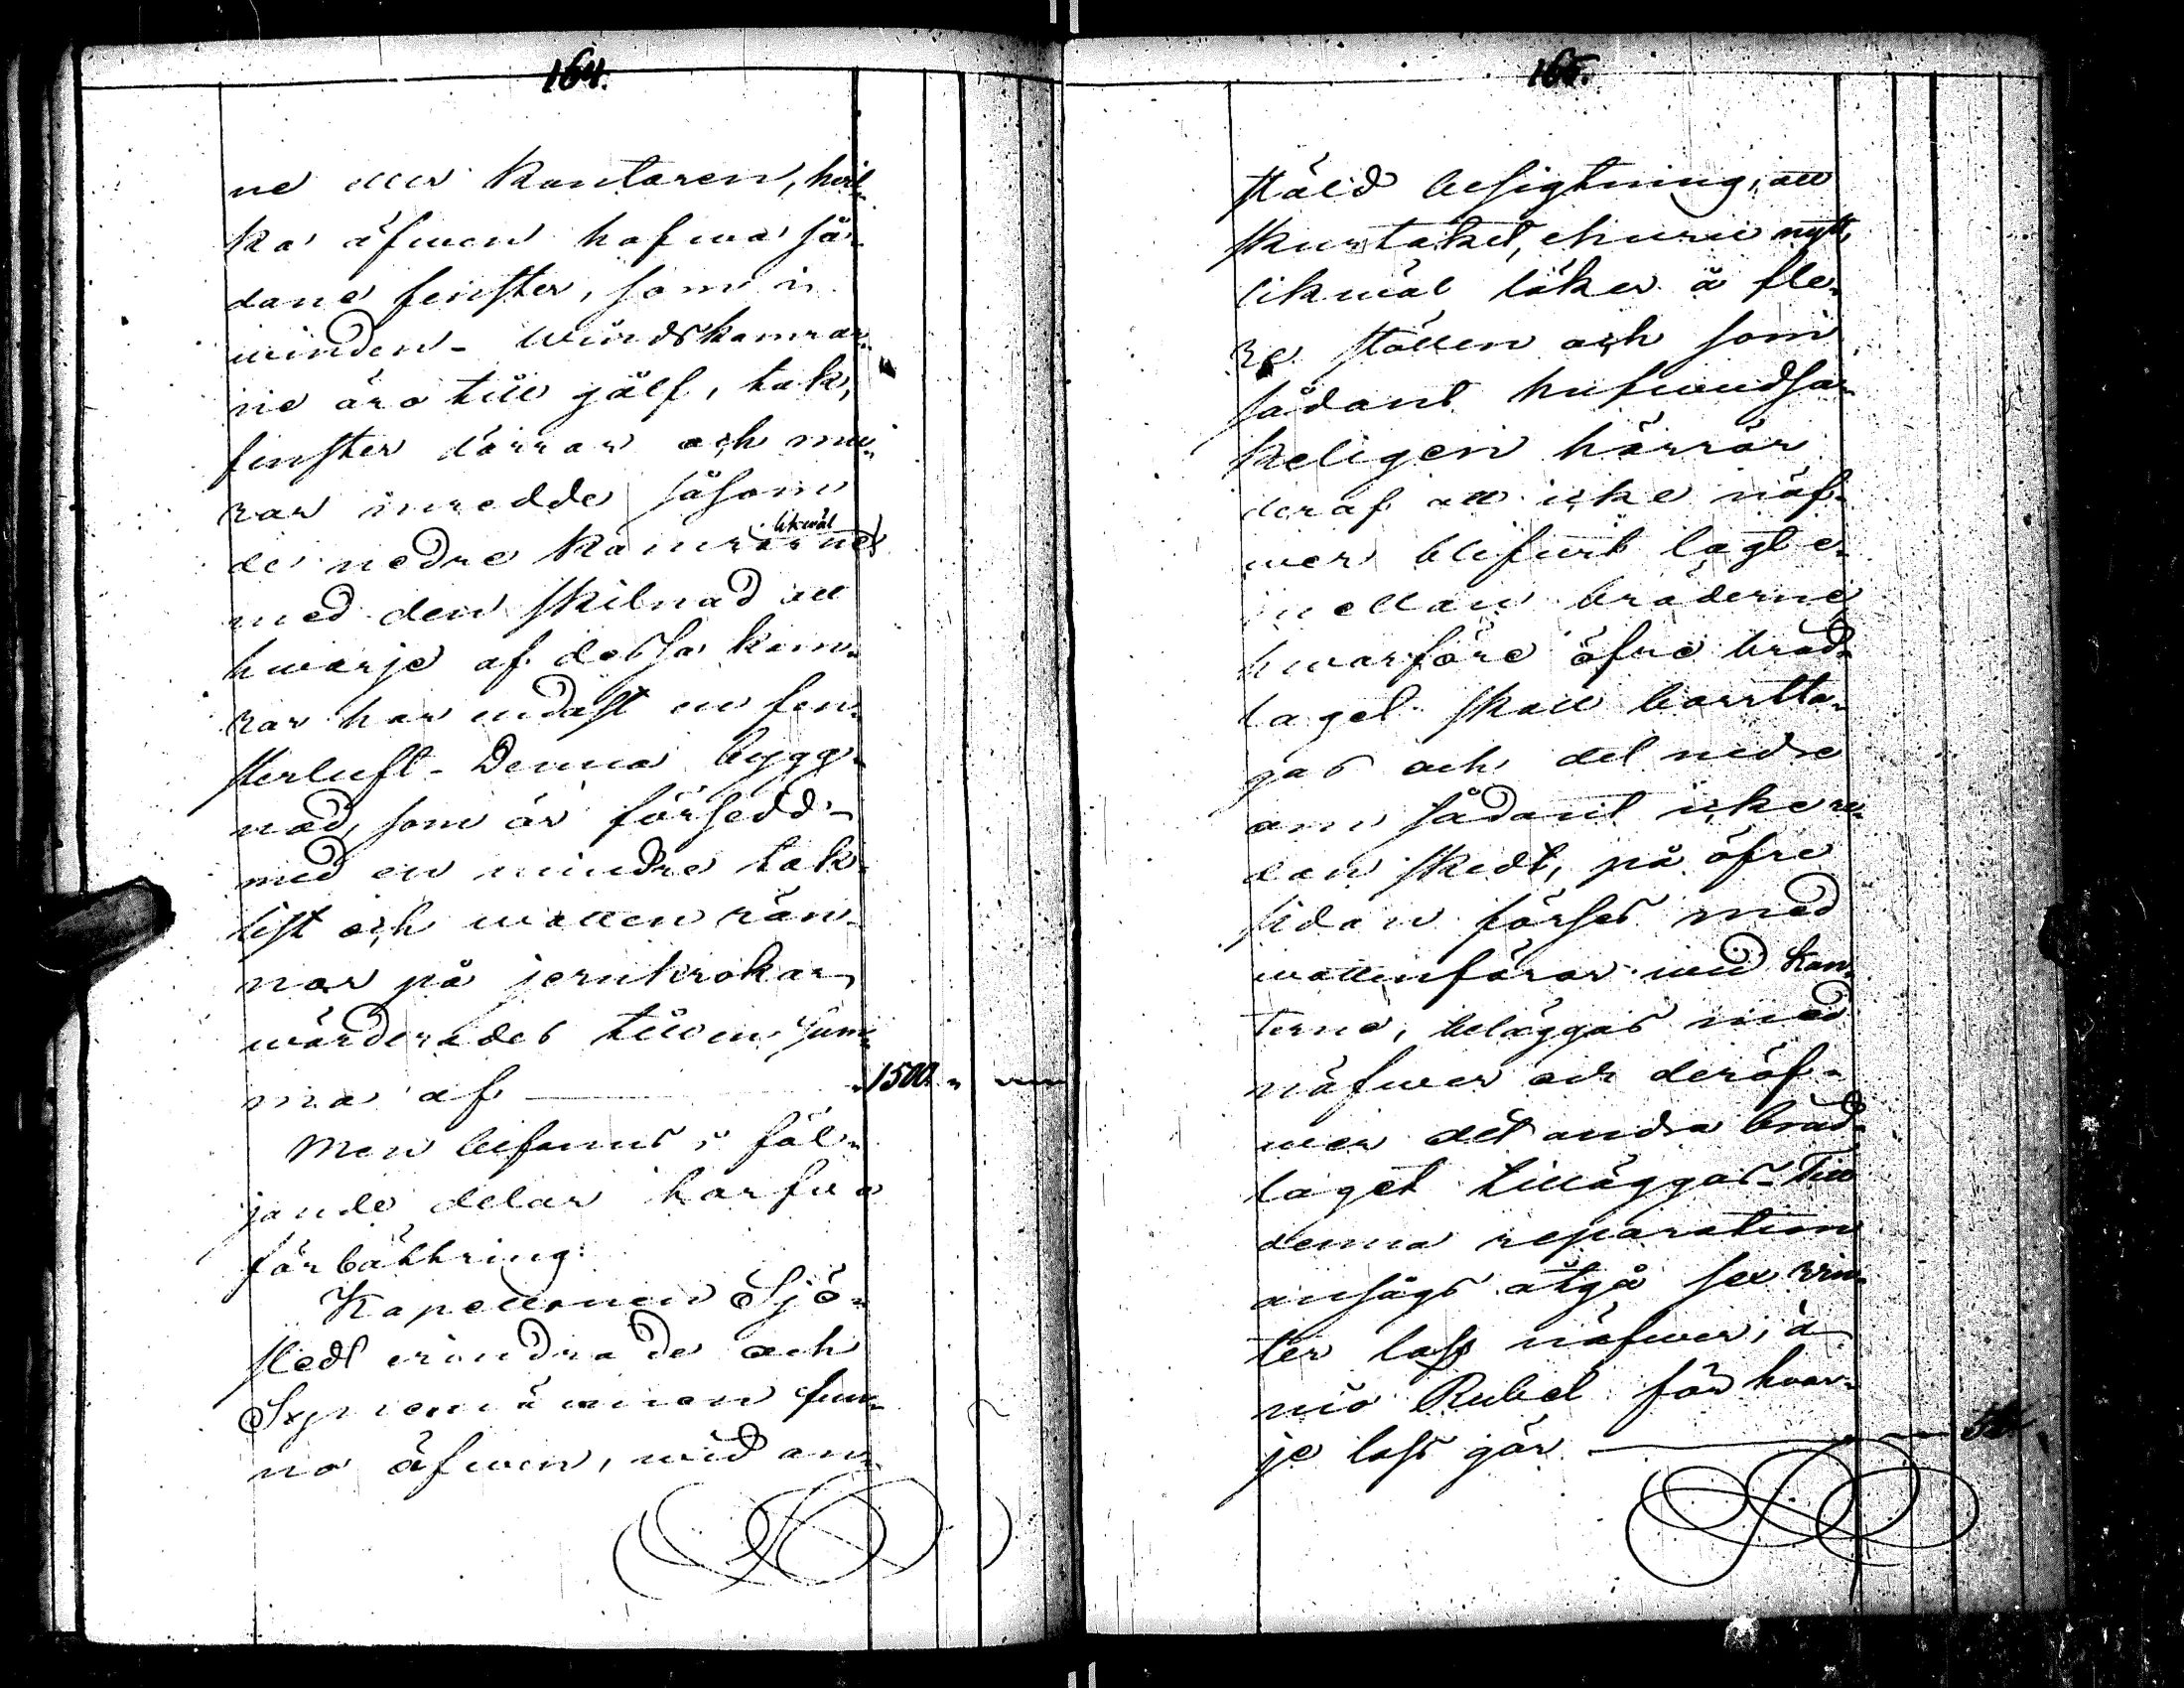 164.
ne eller Kontoren, hvil-
ka äfwen hafwa så-
dane fenster, som in
winden - Windskamrar-
ne äro till gålf, tak,
fenster dörrar och mu-
rar inredde såsom
likwäl
de nedre Kamrarne
med den skilnad att
hwarje af dessa kam-
rar har endast en fen-
sterluft - Denna bygg-
nad, som är försedd
med en mindre tak-
list och watten rän-
nor på jernkrokar,
wärderades till en sum-
ma af — 1500.
Men befanns i föl-
jande delar tarfwa
förbättring:
Kapellanen Sjö-
stedt erindrade och
Synemännen fun-
no äfwen, wid an-
165.
stäld besigtning, att
skurtaket, ehuru nytt,
likwäl läker å fle-
re ställen och som
sådant hufwudsa-
keligen härrör
deraf att icke näf-
wer blifwit lagt e-
mellan bräderne
hwarföre öfre bräd-
laget skall borrtta-
gas och det nedre
om sådant icke re-
dan skedt, på öfre
sidan förses med
wattenfåror wid Kan-
terne, beläggas med
näfwer och deröf-
wer det andra bräd-
laget tilläggas - Till
denna reparation
ansågs åtgå sex win-
ter lass näfwer, à
nio Rubel för hwar-
je lass gör — 54